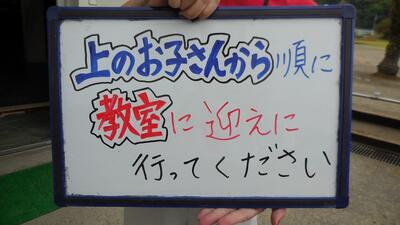 上のお子さんから順に
教室に迎えに
行ってください